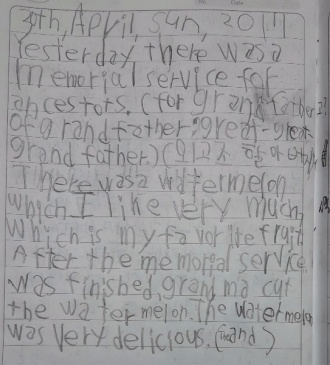 30th, April, Sun, 2017
Yesterday, there was a
memorial service for
ancestors. (for grand father
of grand father: great-great
grand father.) (외고조 할아버
There was a watermelon
which I like very much,
which is my favorite fruit
After the memorial service
was finished, grandma cut
the watermelon. The watermelon
was very delicious. (and)